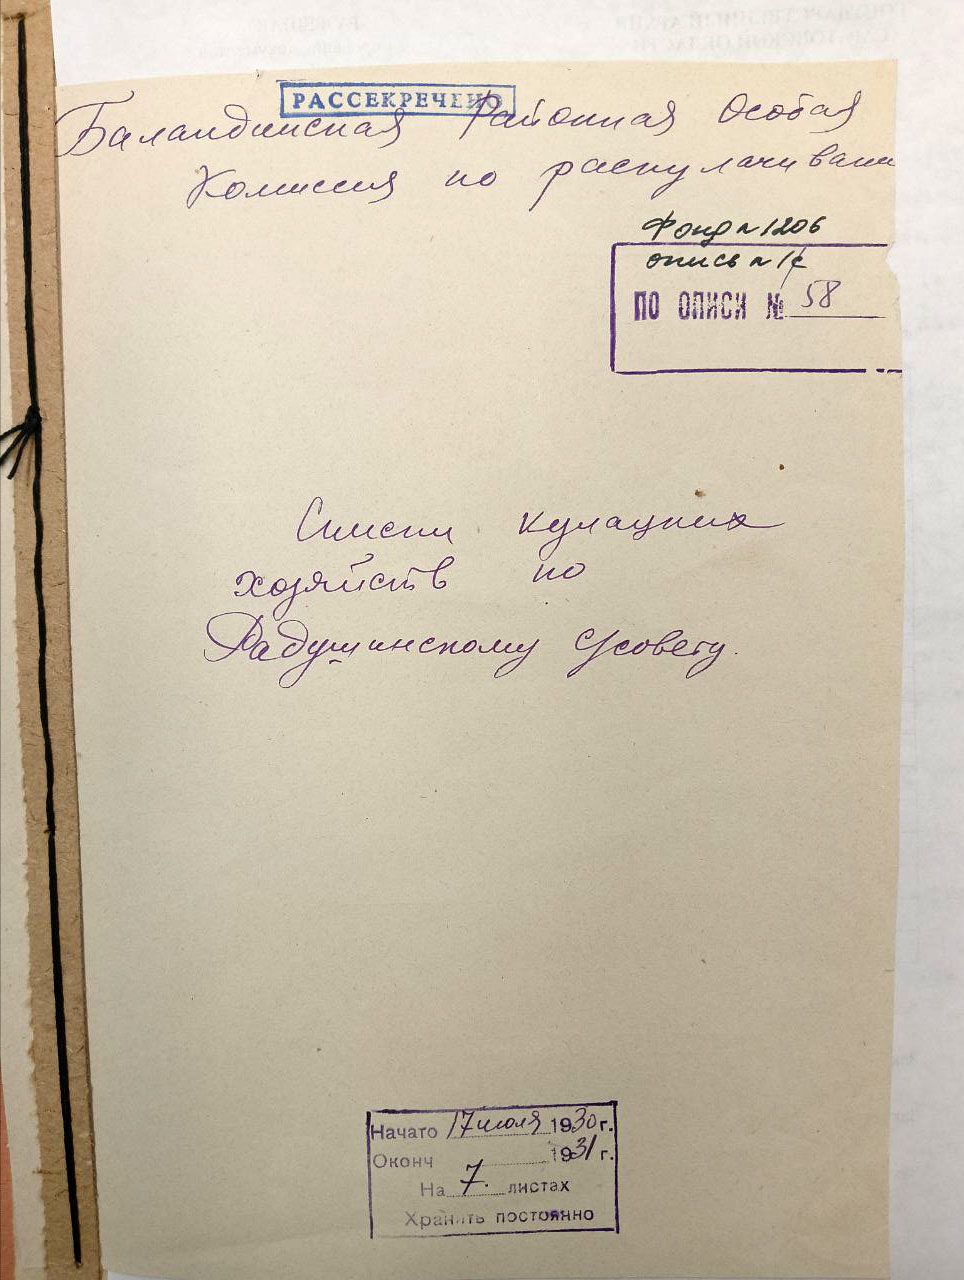 РАССЕКРЕЧЕНО
Баландинская Районная Особая
Комиссия по раскулачивани
Фонд № 1206
опись № 1с
ПО ОПИСИ № 58
Списки кулацких
хозяйств по
Радушинскому с/совету.
Начато 17 июля 1930 г.
Оконч 1931 г.
На 7. листах
Хранить постоянно